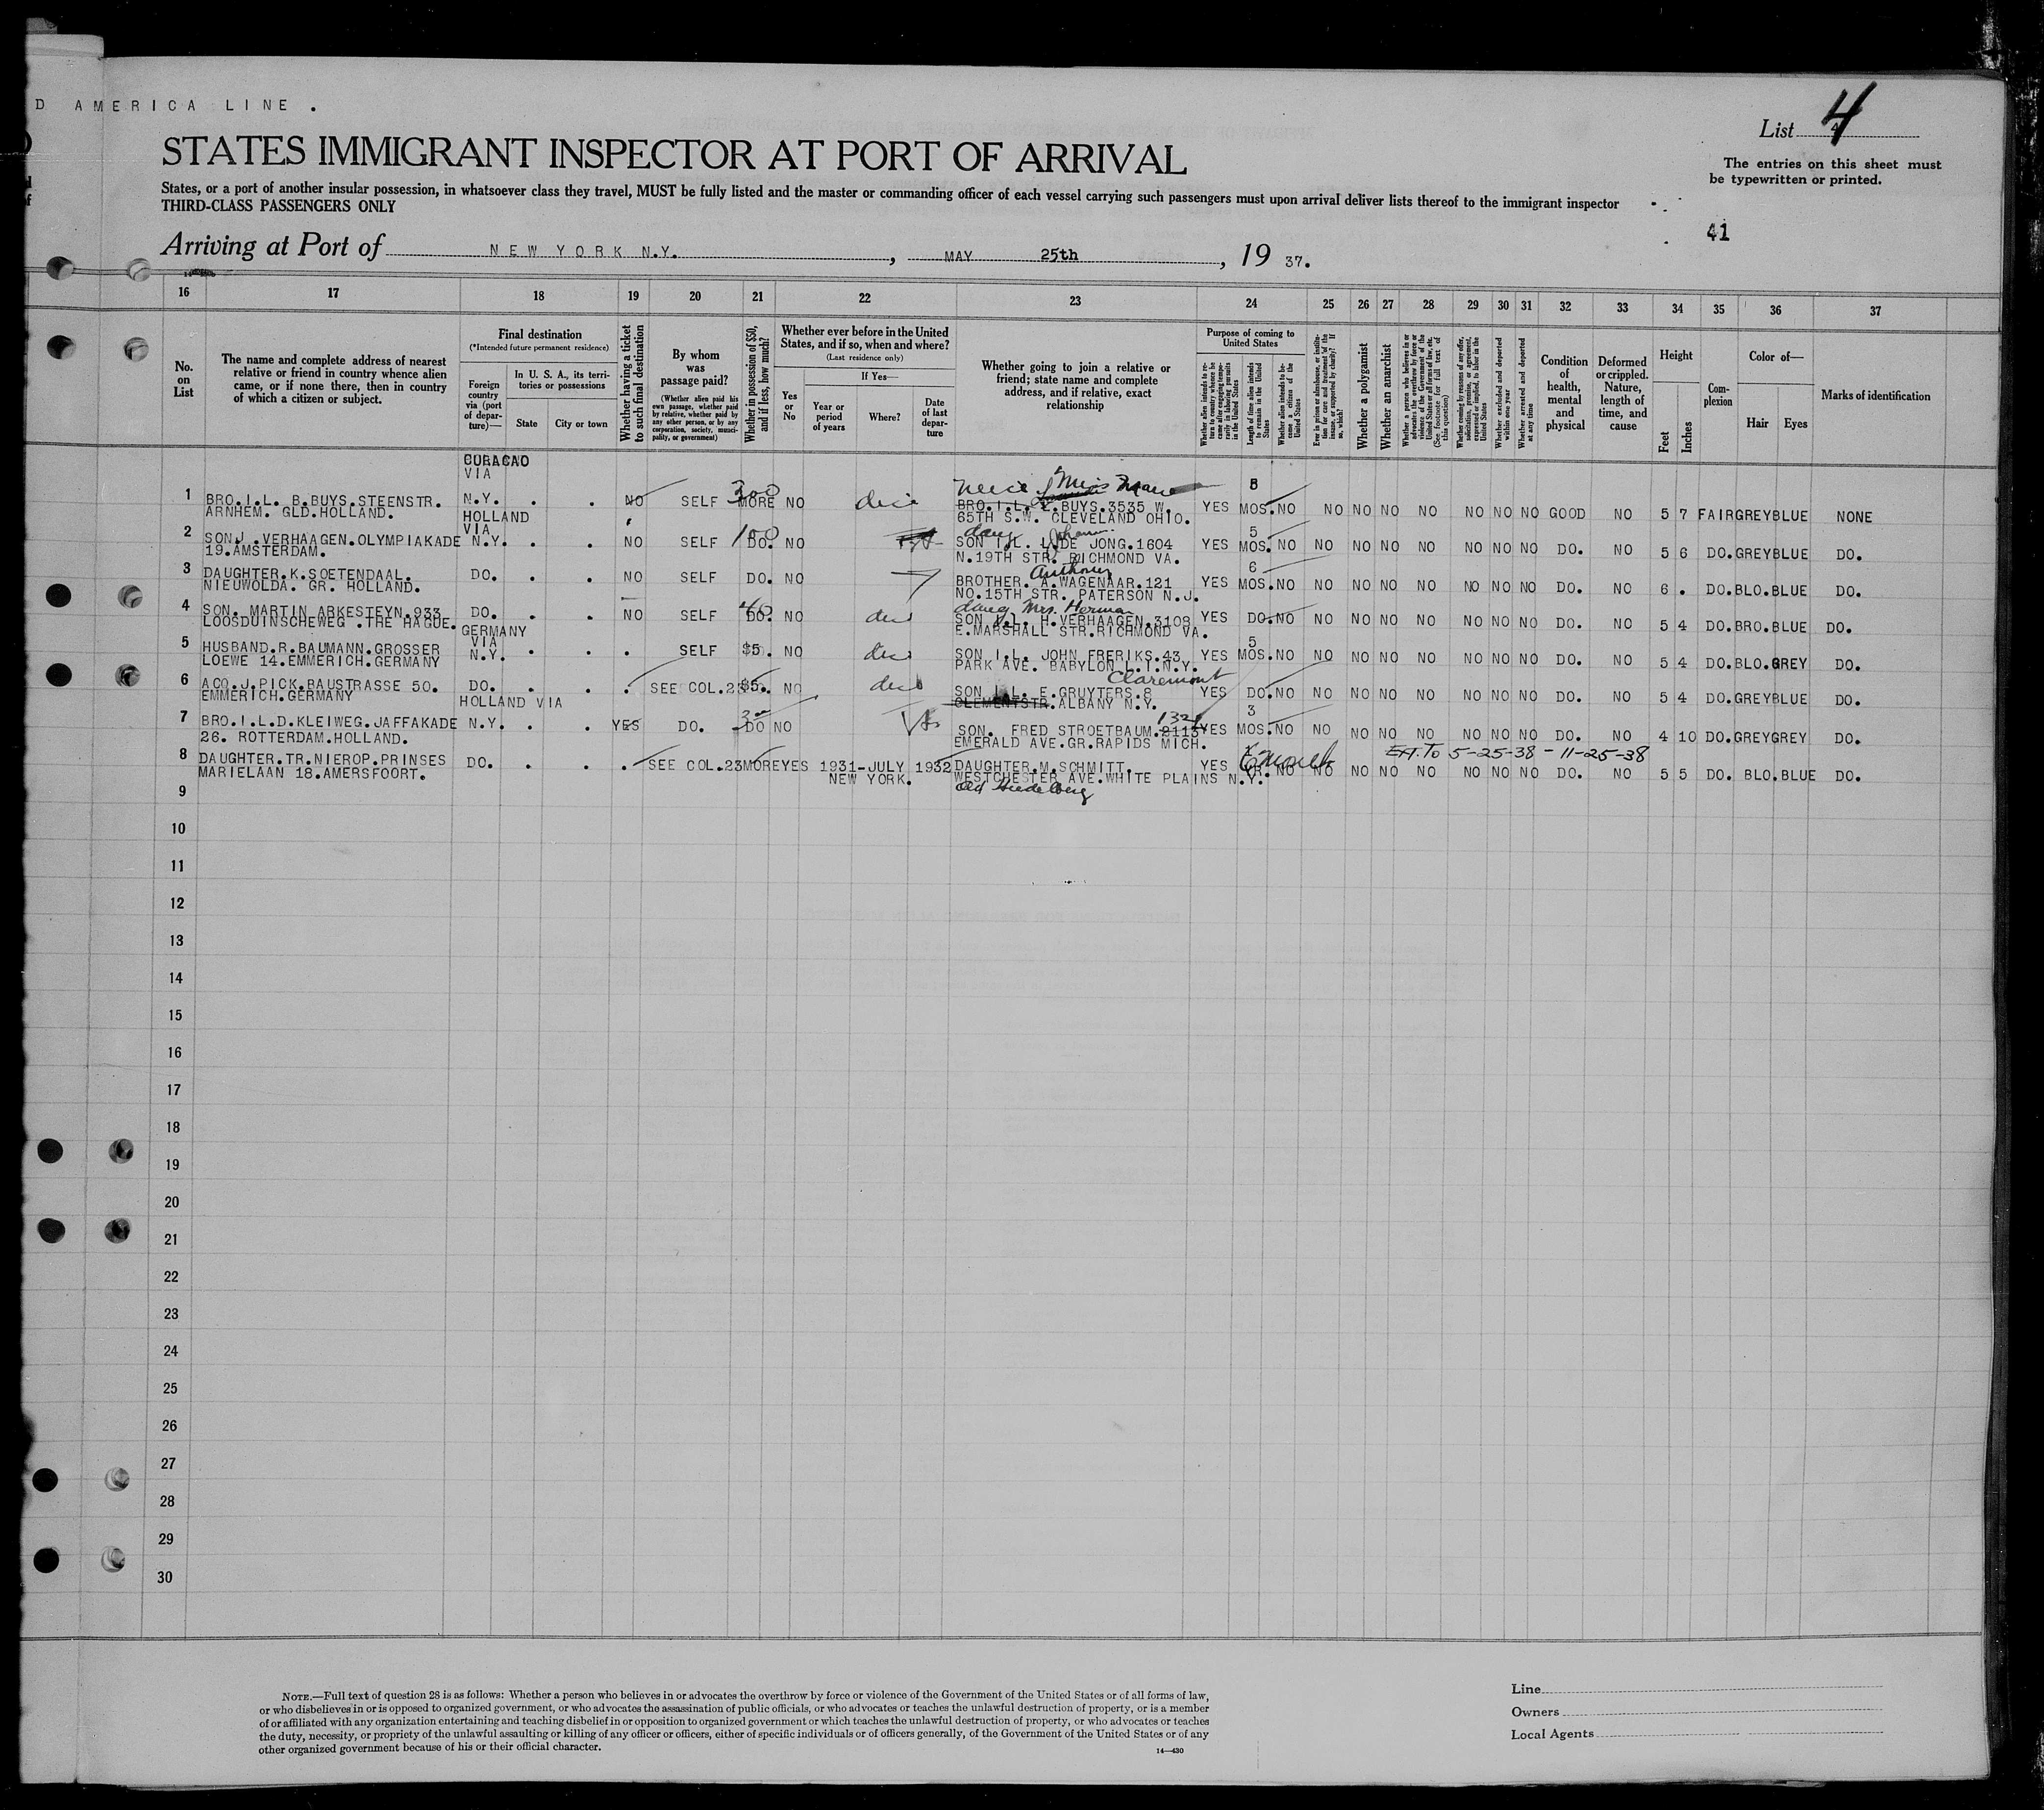 D AMERICA LINE .
List 4
STATES IMMIGRANT INSPECTOR AT PORT OF ARRIVAL
The entries on this sheet must
be typewritten or printed.
States, or a port of another insular possession, in whatsoever class they travel, MUST be fully listed and the master or commanding officer of each vessel carrying such passengers must upon arrival deliver lists thereof to the immigrant inspector
THIRD-CLASS PASSENGERS ONLY
41
Arriving at Port of NEW YORK N.Y. , MAY 25th , 19 37.
16 17 18 19 20 21 22 23 24 25 26 27 28 29 30 31 32 33 34 35 36 37
No. on List
The name and complete address of nearest relative or friend in country whence alien came, or if none there, then in country of which a citizen or subject.
Final destination
(*Intended future permanent residence)
Foreign country via (port of departure)—
In U. S. A., its territories or possessions
State
City or town
Whether having a ticket to such final destination
By whom was passage paid?
(Whether alien paid his own passage, whether paid by relative, whether paid by any other person, or by any corporation, society, municipality, or government)
Whether in possession of $50, and if less, how much?
Whether ever before in the United States, and if so, when and where?
(Last residence only)
Yes or No
If Yes—
Year or period of years
Where?
Date of last departure
Whether going to join a relative or friend; state name and complete address, and if relative, exact relationship
Purpose of coming to United States
Whether alien intends to return to country whence he came after engaging temporarily in laboring pursuits in the United States
Length of time alien intends to remain in the United States
Whether alien intends to become a citizen of the United States
Ever in prison or almshouse, or institution for care and treatment of the insane, or supported by charity? If so, which?
Whether a polygamist
Whether an anarchist
Whether a person who believes in or advocates the overthrow by force or violence of the Government of the United States or all forms of law, etc. (See footnote for full text of this question)
Whether coming by reasons of any offer, solicitation, promise, or agreement, expressed or implied, to labor in the United States
Whether excluded and deported within one year
Whether arrested and deported at any time
Condition of health, mental and physical
Deformed or crippled. Nature, length of time, and cause
Height
Feet
Inches
Complexion
Color of—
Hair
Eyes
Marks of identification
CURACAO
VIA
1 BRO.I.L. B.BUYS.STEENSTR. N.Y. . . NO SELF 300 MORE NO Neice Miss BRO.I.L. BUYS.3535 W. YES 8 MOS. NO NO NO NO NO NO NO NO GOOD NO 5 7 FAIR GREY BLUE NONE
ARNHEM. GLD.HOLLAND. HOLLAND 65TH S.W. CLEVELAND OHIO.
VIA
2 SON.J.VERHAAGEN.OLYMPIAKADE N.Y. . . NO SELF 100 DO. NO daug SON I.L. L.DE JONG.1604 YES 5 MOS. NO NO NO NO NO NO NO NO DO. NO 5 6 DO. GREY BLUE DO.
19.AMSTERDAM. N.19TH STR. RICHMOND VA.
3 DAUGHTER.K.SOETENDAAL. DO. . . NO SELF DO. NO Anthony BROTHER. A.WAGENAAR.121 YES 6 MOS. NO NO NO NO NO NO NO NO DO. NO 6 . DO. BLO. BLUE DO.
NIEUWOLDA. GR. HOLLAND. NO.15TH STR. PATERSON N.J.
4 SON. MARTIN ARKESTEYN.933 DO. . . NO SELF 40 DO. NO daug Mrs. Herman SON I.L. H.VERHAAGEN.3108 YES DO. NO NO NO NO NO NO NO NO DO. NO 5 4 DO. BRO. BLUE DO.
LOOSDUINSCHEWEG .THE HAGUE. E.MARSHALL STR.RICHMOND VA.
GERMANY
VIA
5 HUSBAND.R.BAUMANN.GROSSER N.Y. . . . SELF $5. NO SON I.L. JOHN FRERIKS.43 YES 5 MOS. NO NO NO NO NO NO NO NO DO. NO 5 4 DO. BLO. GREY DO.
LOEWE 14.EMMERICH.GERMANY PARK AVE. BABYLON L.I.N.Y.
6 ACQ.J.PICK.BAUSTRASSE 50. DO. . . . SEE COL.23 $5. NO Claremont SON I.L. E.GRUYTERS.8 YES DO. NO NO NO NO NO NO NO NO DO. NO 5 4 DO. GREY BLUE DO.
EMMERICH.GERMANY HOLLAND VIA CLEMENTSTR.ALBANY N.Y.
7 BRO.I.L.D.KLEIWEG.JAFFAKADE N.Y. . . YES DO. DO NO 1324 SON. FRED STROETBAUM.2113 YES 3 MOS. NO NO NO NO NO NO NO NO DO. NO 4 10 DO. GREY GREY DO.
26. ROTTERDAM.HOLLAND. EMERALD AVE.GR.RAPIDS MICH.
Ext. To 5-25-38 - 11-25-38
8 DAUGHTER.TR.NIEROP.PRINSES DO. . . . SEE COL.23 MORE YES 1931-JULY 1932 DAUGHTER.M.SCHMITT. YES NO NO NO NO NO NO NO NO DO. NO 5 5 DO. BLO. BLUE DO.
MARIELAAN 18.AMERSFOORT. NEW YORK. WESTCHESTER AVE.WHITE PLAINS N.Y.
9
10
11
12
13
14
15
16
17
18
19
20
21
22
23
24
25
26
27
28
29
30
NOTE.—Full text of question 28 is as follows: Whether a person who believes in or advocates the overthrow by force or violence of the Government of the United States or of all forms of law,
or who disbelieves in or is opposed to organized government, or who advocates the assassination of public officials, or who advocates or teaches the unlawful destruction of property, or is a member
of or affiliated with any organization entertaining and teaching disbelief in or opposition to organized government or which teaches the unlawful destruction of property, or who advocates or teaches
the duty, necessity, or propriety of the unlawful assaulting or killing of any officer or officers, either of specific individuals or of officers generally, of the Government of the United States or of any
other organized government because of his or their official character.
14—430
Line
Owners
Local Agents